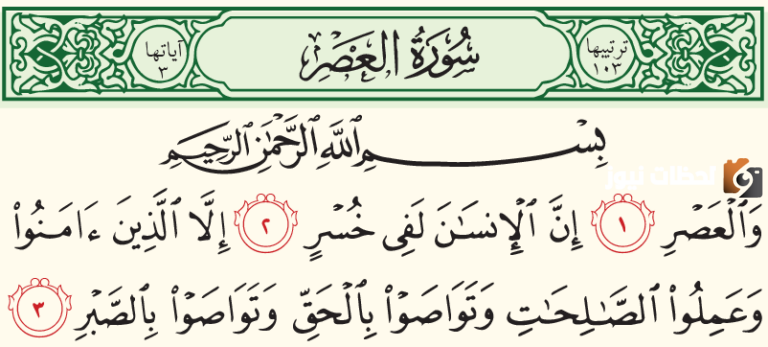 ترتيبها ١٠٣
سُورَةُ العَصْرِ
آياتها ٣
بِسْمِ ٱللَّهِ ٱلرَّحْمَٰنِ ٱلرَّحِيمِ
لحظات نيوز
وَٱلْعَصْرِ ١ إِنَّ ٱلْإِنسَـٰنَ لَفِى خُسْرٍ ٢ إِلَّا ٱلَّذِينَ ءَامَنُوا۟
وَعَمِلُوا۟ ٱلصَّـٰلِحَـٰتِ وَتَوَاصَوْا۟ بِٱلْحَقِّ وَتَوَاصَوْا۟ بِٱلصَّبْرِ ٣